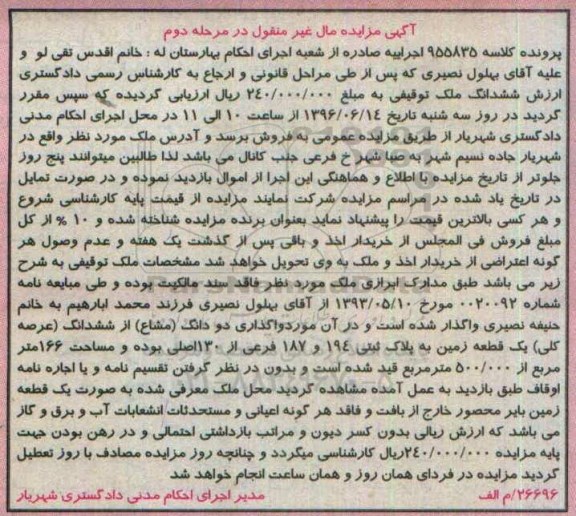 آگهی مزایده مال غیر منقول در مرحله دوم
پرونده کلاسه ۹۵۵۸۳۵ اجراییه صادره از شعبه اجرای احکام بهارستان له : خانم اقدس تقی لو و
علیه آقای بهلول نصیری که پس از طی مراحل قانونی و ارجاع به کارشناس رسمی دادگستری
ارزش ششدانگ ملک توقیفی به مبلغ ۲۴۰/۰۰۰/۰۰۰ ریال ارزیابی گردیده که سپس مقرر
گردید در روز سه شنبه تاریخ ۱۳۹۶/۰۶/۱۴ از ساعت ۱۰ الی ۱۱ در محل اجرای احکام مدنی
دادگستری شهریار از طریق مزایده عمومی به فروش برسد و آدرس ملک مورد نظر واقع در
شهریار جاده نسیم شهر به صبا شهر خ فرعی جنب کانال می باشد لذا طالبین میتوانند پنج روز
جلوتر از تاریخ مزایده با اطلاع و هماهنگی این اجرا از اموال بازدید نموده و در صورت تمایل
در تاریخ یاد شده در مراسم مزایده شرکت نمایند مزایده از قیمت پایه کارشناسی شروع
و هر کسی بالاترین قیمت را پیشنهاد نماید بعنوان برنده مزایده شناخته شده و ۱۰ % از کل
مبلغ فروش فی المجلس از خریدار اخذ و باقی پس از گذشت یک هفته و عدم وصول هر
گونه اعتراضی از خریدار اخذ و ملک به وی تحویل خواهد شد مشخصات ملک توقیفی به شرح
زیر می باشد طبق مدارک ابرازی ملک مورد نظر فاقد سند مالکیت بوده و طی مبایعه نامه
شماره ۰۰۲۰۰۹۲ مورخ ۱۳۹۳/۰۵/۱۰ از آقای بهلول نصیری فرزند محمد ابارهیم به خانم
حنیفه نصیری واگذار شده است و در آن موردواگذاری دو دانگ (مشاع) از ششدانگ (عرصه
کلی) یک قطعه زمین به پلاک ثبتی ۱۹۴ و ۱۸۷ فرعی از ۱۳۰اصلی بوده و مساحت ۱۶۶متر
مربع از ۵۰۰/۰۰۰ مترمربع قید شده است و بدون در نظر گرفتن تقسیم نامه و یا اجاره نامه
اوقاف طبق بازدید به عمل آمده مشاهده گردید محل ملک معرفی شده به صورت یک قطعه
زمین بایر محصور خارج از بافت و فاقد هر گونه اعیانی و مستحدثات انشعابات آب و برق و گاز
می باشد که ارزش ریالی بدون کسر دیون و مراتب بازداشتی احتمالی و در رهن بودن جهت
پایه مزایده ۲۴۰/۰۰۰/۰۰۰ریال کارشناسی میگردد و چنانچه روز مزایده مصادف با روز تعطیل
گردید مزایده در فردای همان روز و همان ساعت انجام خواهد شد
۲۶۶۹۶/م الف مدیر اجرای احکام مدنی دادگستری شهریار